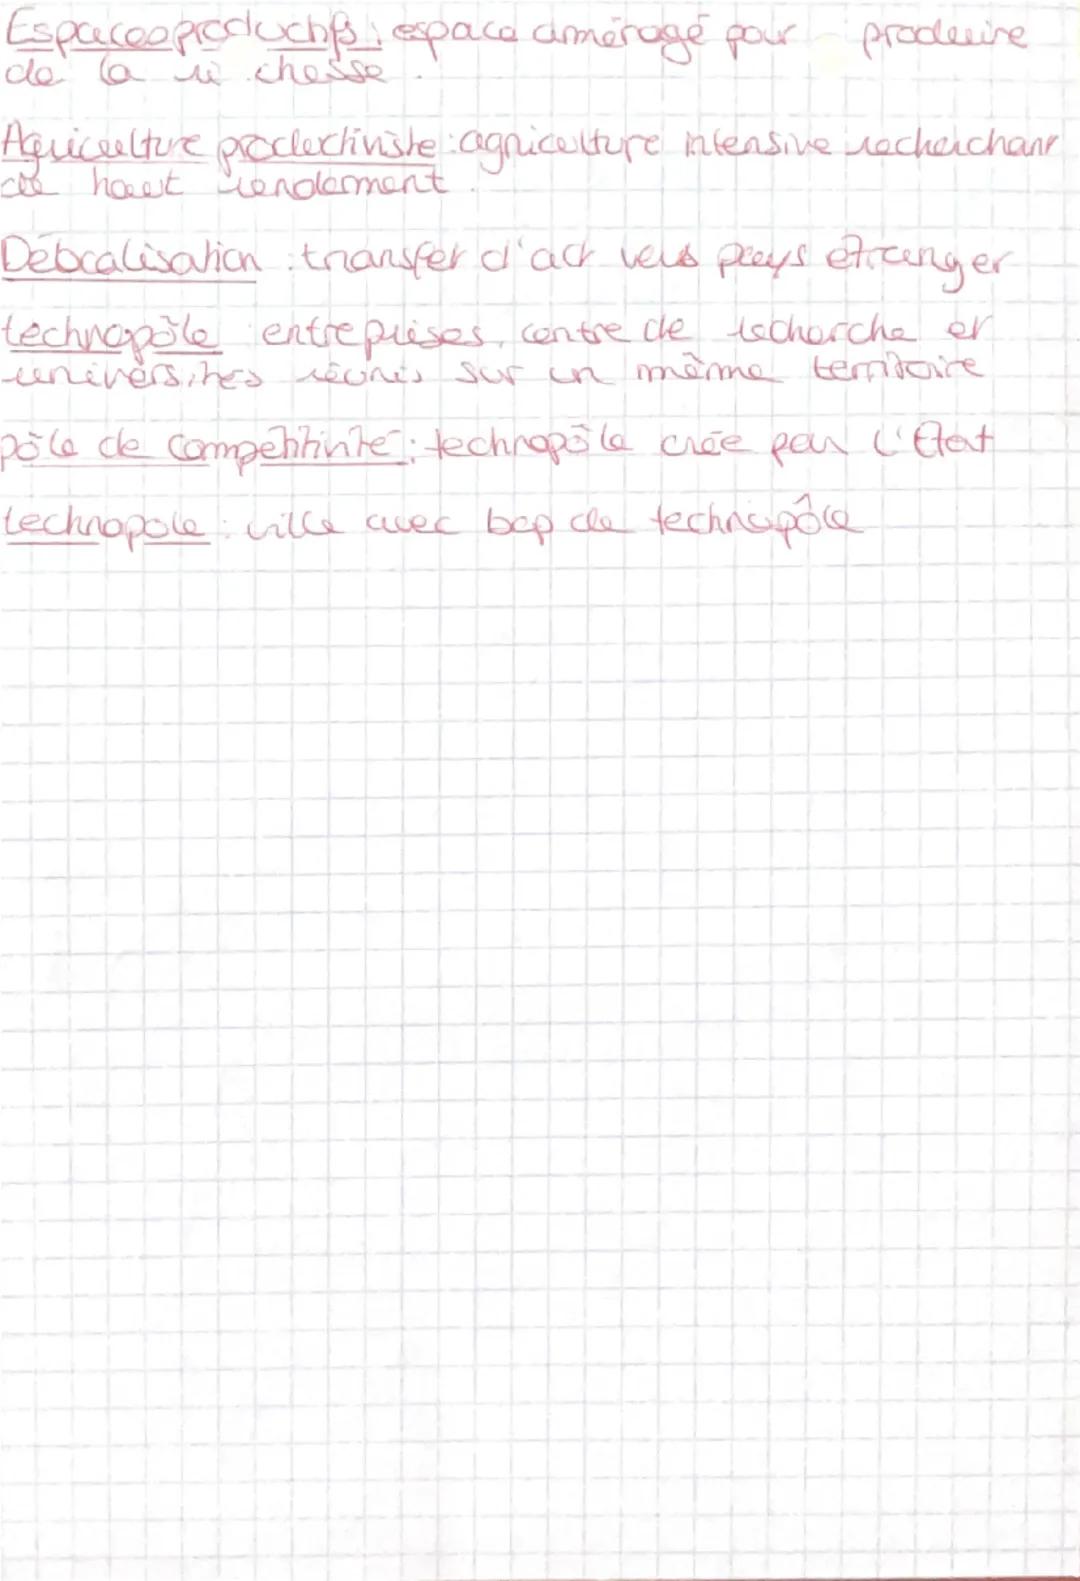 Espaces productifs : espace aménagé pour produire
de la richesse.
Agriculture productiviste : agriculture intensive recherchant
de haut rendement.
Délocalisation : transfer d'act vers pays étranger
technopôle entreprises, centre de recherche et
universités réunis sur un même territoire
pôle de compétitivité : technopôle crée par l'État
technopole : ville avec bcp de technopôle